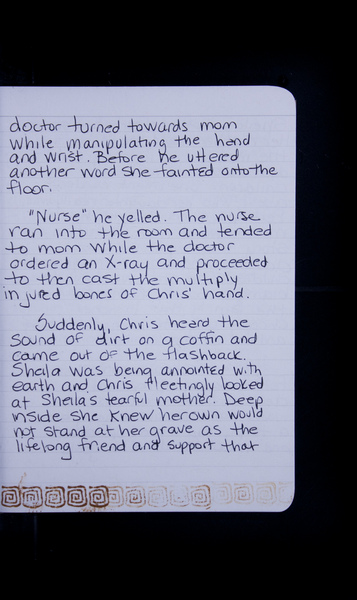 doctor turned towards mom
while manipulating the hand
and wrist. Before he uttered
another word she fainted onto the
floor.
"Nurse" he yelled. The nurse
ran into the room and tended
to mom while the doctor
ordered an X-ray and proceeded
to then cast the multiply
injured bones of Chris' hand.
Suddenly, Chris heard the
sound of dirt on a coffin and
came out of the flashback.
Sheila was being annointed with
earth and Chris fleetingly looked
at Sheila's tearful mother. Deep
inside she knew her own would
not stand at her grave as the
lifelong friend and support that